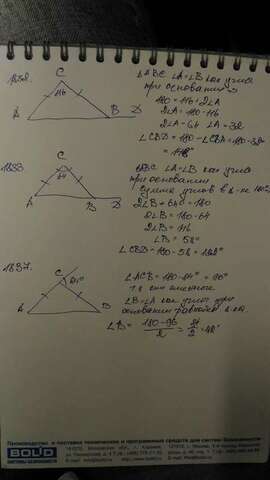 1832.
C
116
A
B
D
△ABC ∠A=∠B как углы
при основании
180=116+2∠A
2∠A=180-116
2∠A=64 ∠A=32
∠CBD=180-∠CBA=180-32
=148°
1833.
C
64
A
B
D
△ABC ∠A=∠B как углы
при основании
сумма углов в 180°
2∠B+64=180
2∠B=180-64
2∠B=116
∠B=58°
∠CBD=180-58=122°
1837.
C
84°
A
B
∠ACB=180-84°=96°
т.к они смежные
∠B=∠A как углы при
основании
∠B=180-96/2=84/2=42°
Производство и поставка технических и программных средств для систем безопасности
BOLID
СИСТЕМЫ БЕЗОПАСНОСТИ